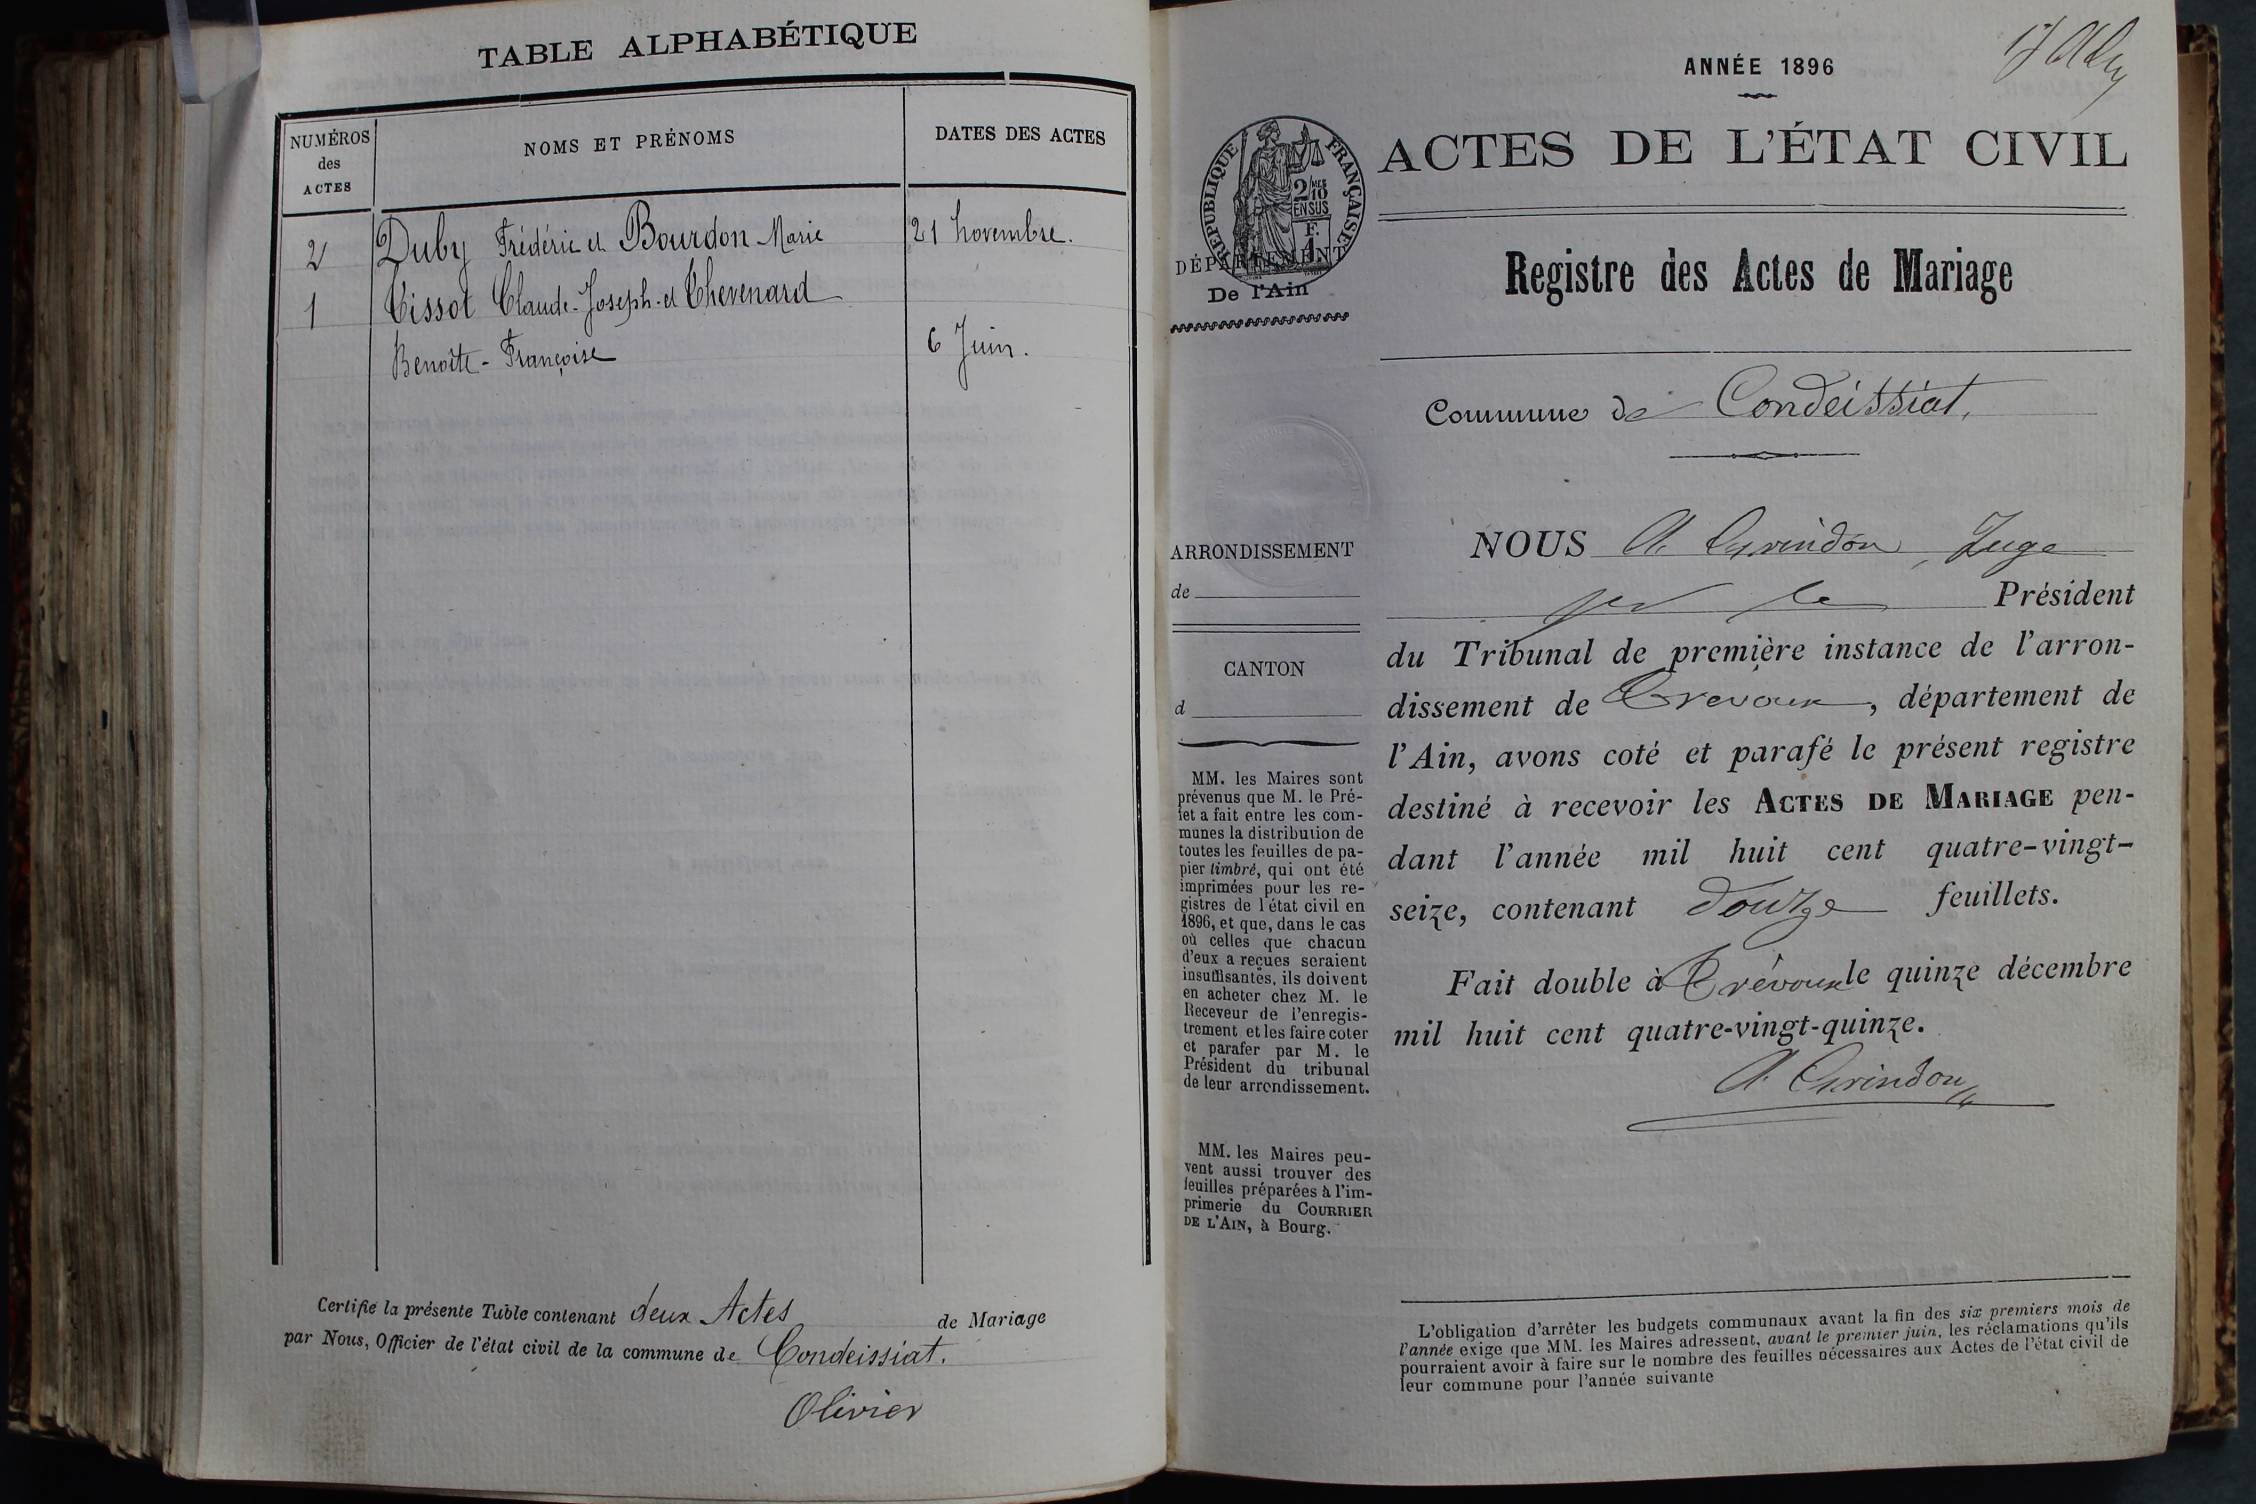 TABLE ALPHABÉTIQUE
NUMÉROS
des
ACTES
NOMS ET PRÉNOMS
DATES DES ACTES
2 Duby Frédéric et Bourdon Marie 21 Novembre.
1 Tissot Claude-Joseph et Thevenard
Benoîte-Françoise 6 Juin.
Certifié la présente Table contenant deux Actes de Mariage
par Nous, Officier de l'état civil de la commune de Condeissiat.
Olivier
ANNÉE 1896
RÉPUBLIQUE FRANÇAISE
2/10
EN SUS
F.
1
DÉPARTEMENT
De l'Ain
ACTES DE L'ÉTAT CIVIL
Registre des Actes de Mariage
Commune de Condeissiat.
ARRONDISSEMENT
de
CANTON
d
MM. les Maires sont
prévenus que M. le Pré-
fet a fait entre les com-
munes la distribution de
toutes les feuilles de pa-
pier timbré, qui ont été
imprimées pour les re-
gistres de l'état civil en
1896, et que, dans le cas
où celles que chacun
d'eux a reçues seraient
insuffisantes, ils doivent
en acheter chez M. le
Receveur de l'enregis-
trement et les faire coter
et parafer par M. le
Président du tribunal
de leur arrondissement.
MM. les Maires peu-
vent aussi trouver des
feuilles préparées à l'im-
primerie du COURRIER
DE L'AIN, à Bourg.
NOUS A. Grindon, Juge
pr le Président
du Tribunal de première instance de l'arron-
dissement de Trevoux, département de
l'Ain, avons coté et parafé le présent registre
destiné à recevoir les ACTES DE MARIAGE pen-
dant l'année mil huit cent quatre-vingt-
seize, contenant douze feuillets.
Fait double à Trévoux le quinze décembre
mil huit cent quatre-vingt-quinze.
A. Grindon
L'obligation d'arrêter les budgets communaux avant la fin des six premiers mois de
l'année exige que MM. les Maires adressent, avant le premier juin, les réclamations qu'ils
pourraient avoir à faire sur le nombre des feuilles nécessaires aux Actes de l'état civil de
leur commune pour l'année suivante